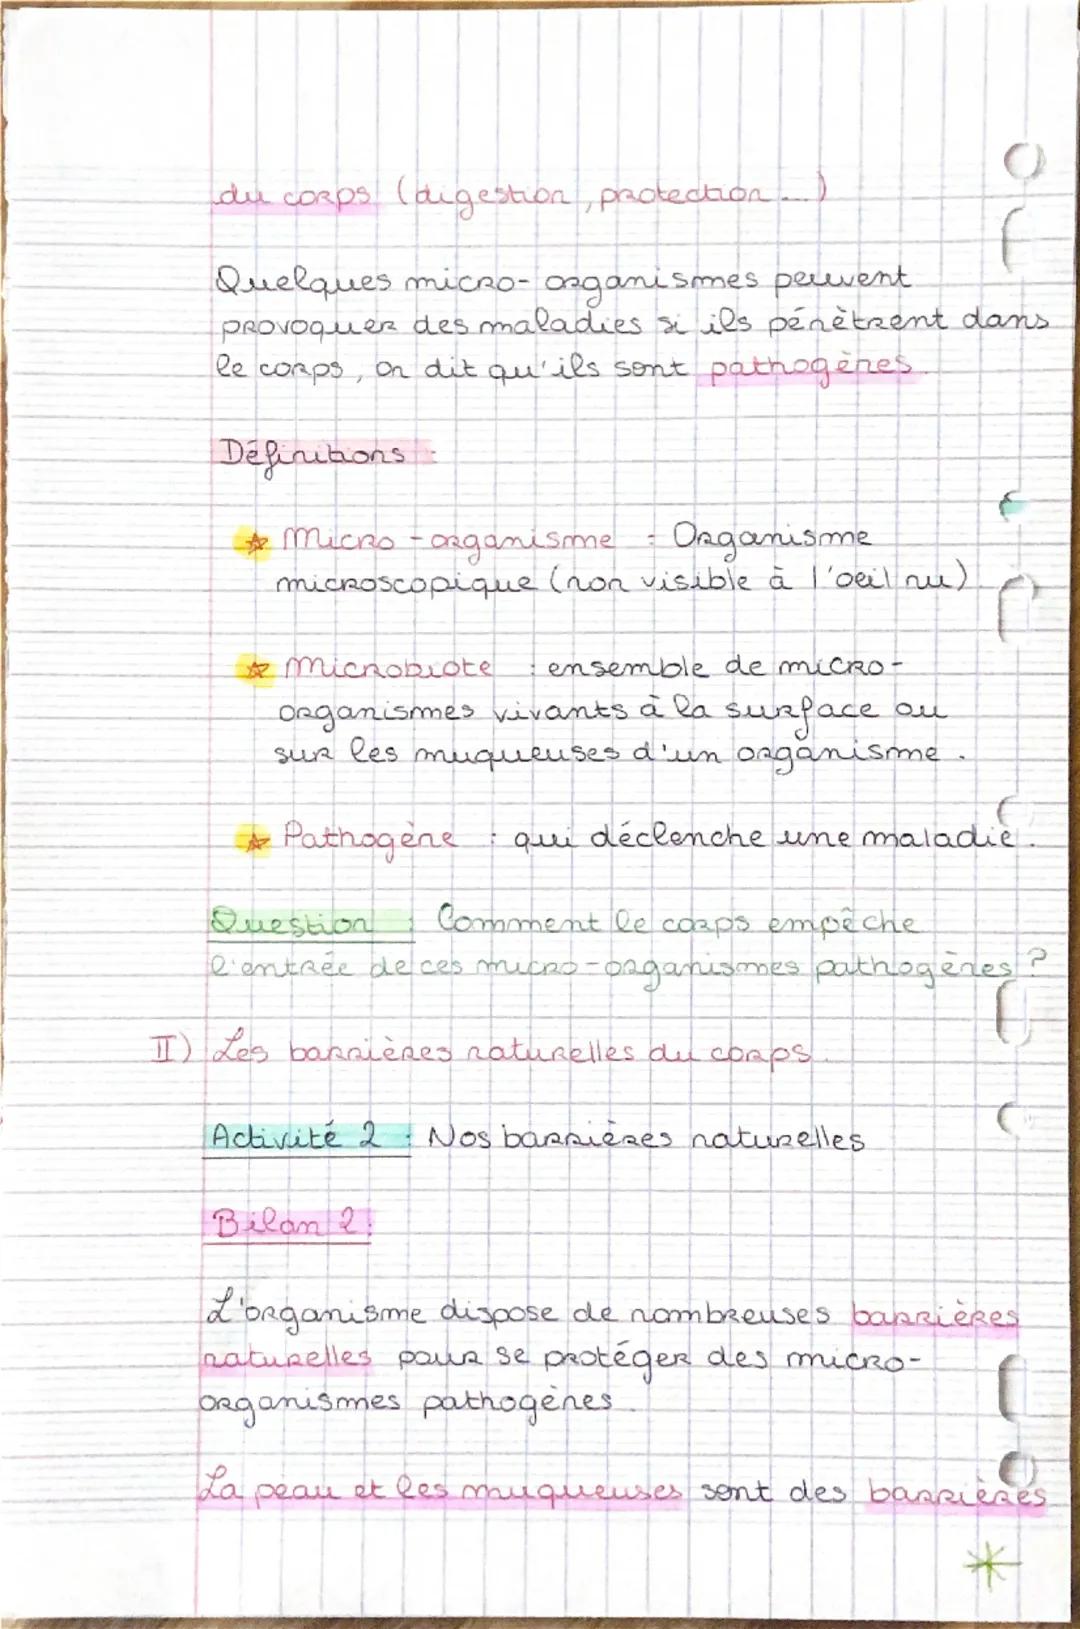 du corps (digestion, protection ...)
Quelques micro-organismes peuvent
provoquer des maladies si ils pénètrent dans
le corps, on dit qu'ils sont pathogènes.
Définitions :
Micro-organisme : Organisme
microscopique (non visible à l'oeil nu).
Microbiote : ensemble de micro-
organismes vivants à la surface ou
sur les muqueuses d'un organisme.
Pathogène : qui déclenche une maladie.
Question : Comment le corps empêche
l'entrée de ces micro-organismes pathogènes ?
II) Les barrières naturelles du corps.
Activité 2 : Nos barrières naturelles
Bilan 2:
L'organisme dispose de nombreuses barrières
naturelles pour se protéger des micro-
organismes pathogènes.
La peau et les muqueuses sont des barrières